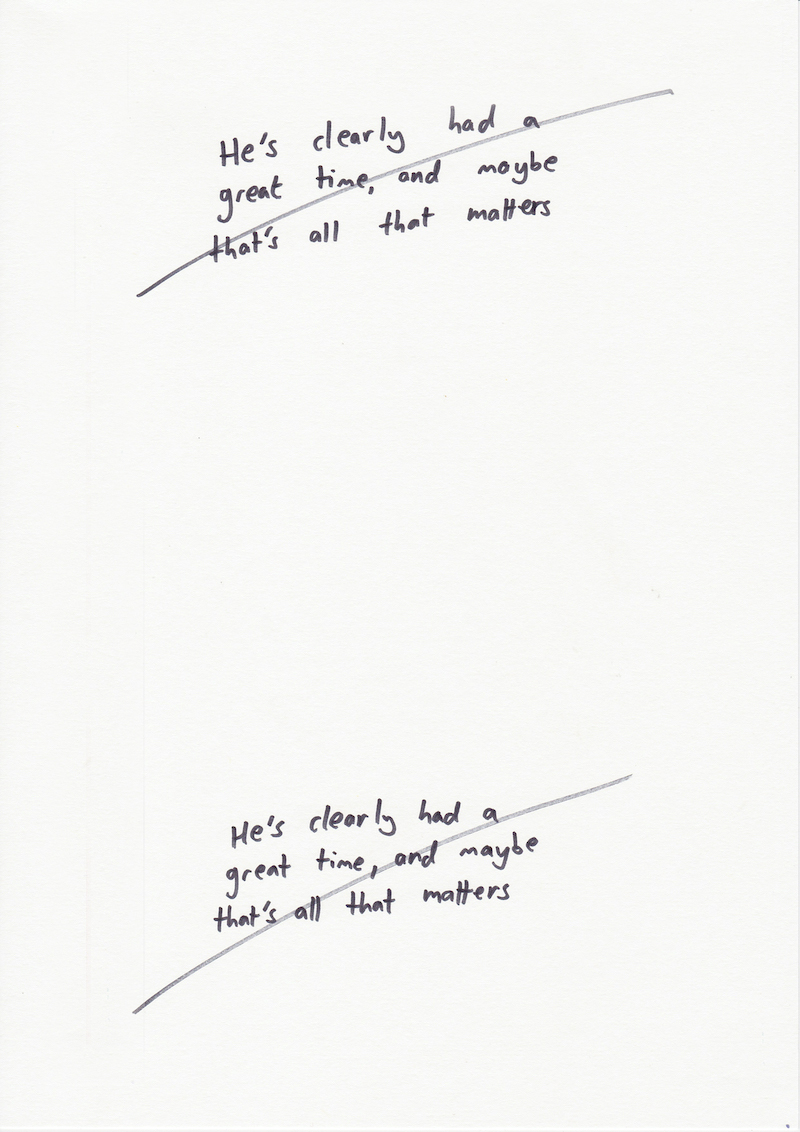 He's clearly had a
great time, and maybe
that's all that matters
He's clearly had a
great time, and maybe
that's all that matters